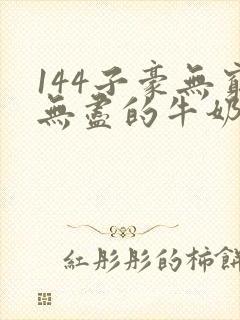 144子豪無窮
無盡的牛奶
紅彤彤的柿餅